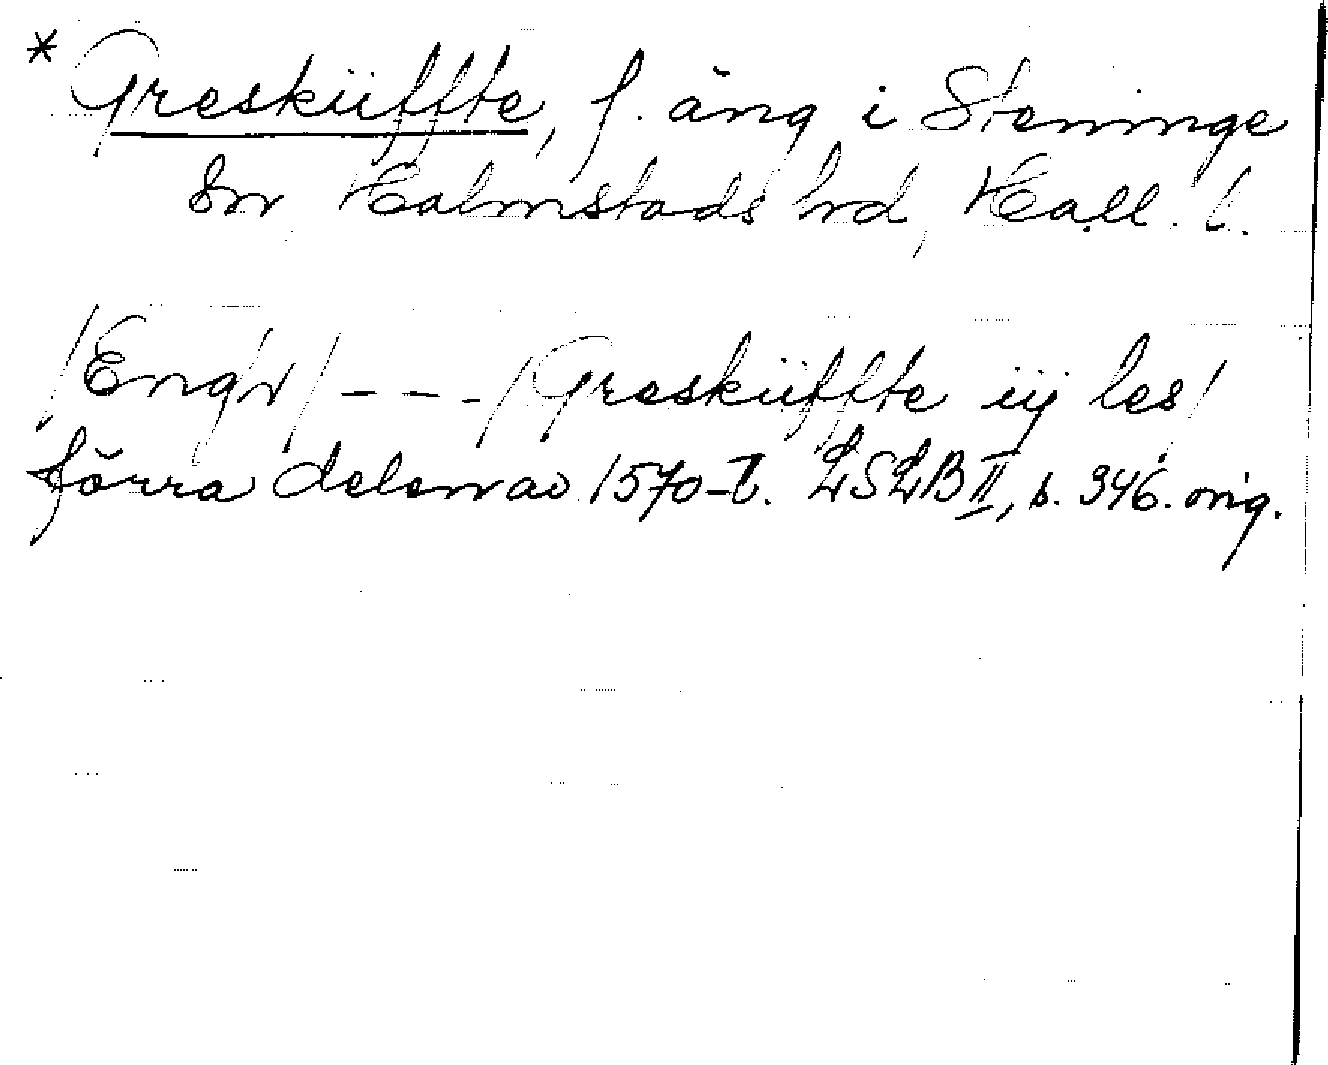 * Gresküffte, f. äng i Steninge
sn Halmstads hd, Hall. l.
/Engr/ - - - / Gresküffte iij les/
förra delen av 1570-t. LSLB II, s. 346. orig.